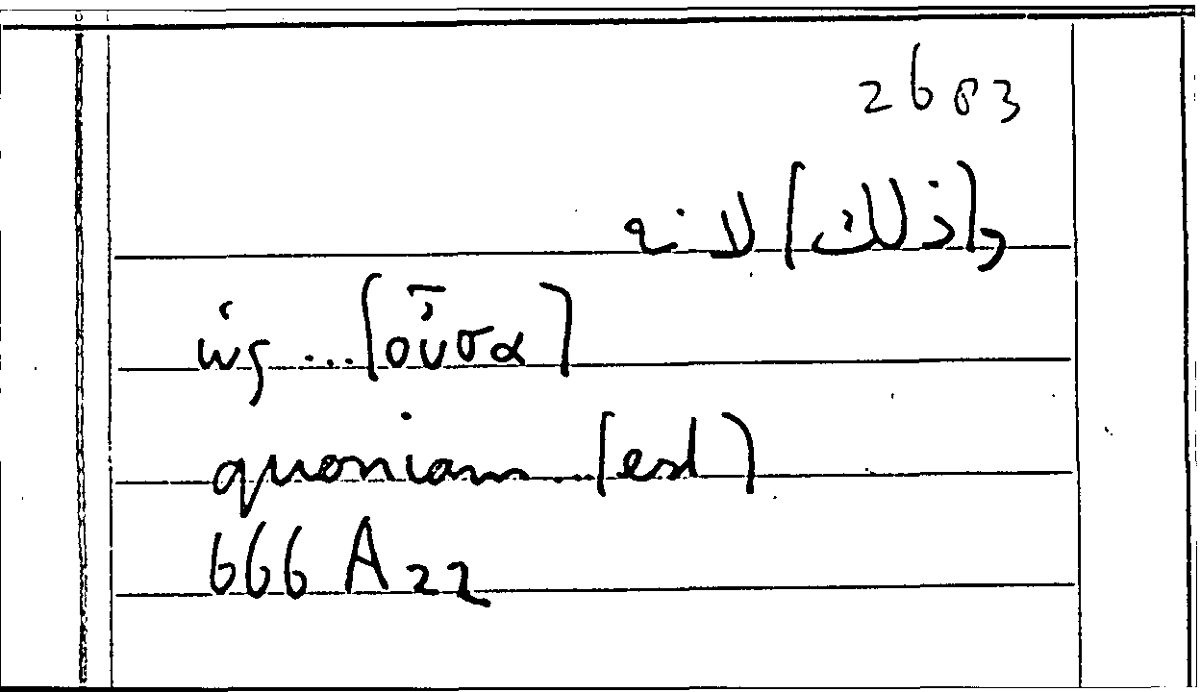 2683
و[ذلك] لانه
ὡς ... [οὖσα]
quoniam ... [est]
666 A 22